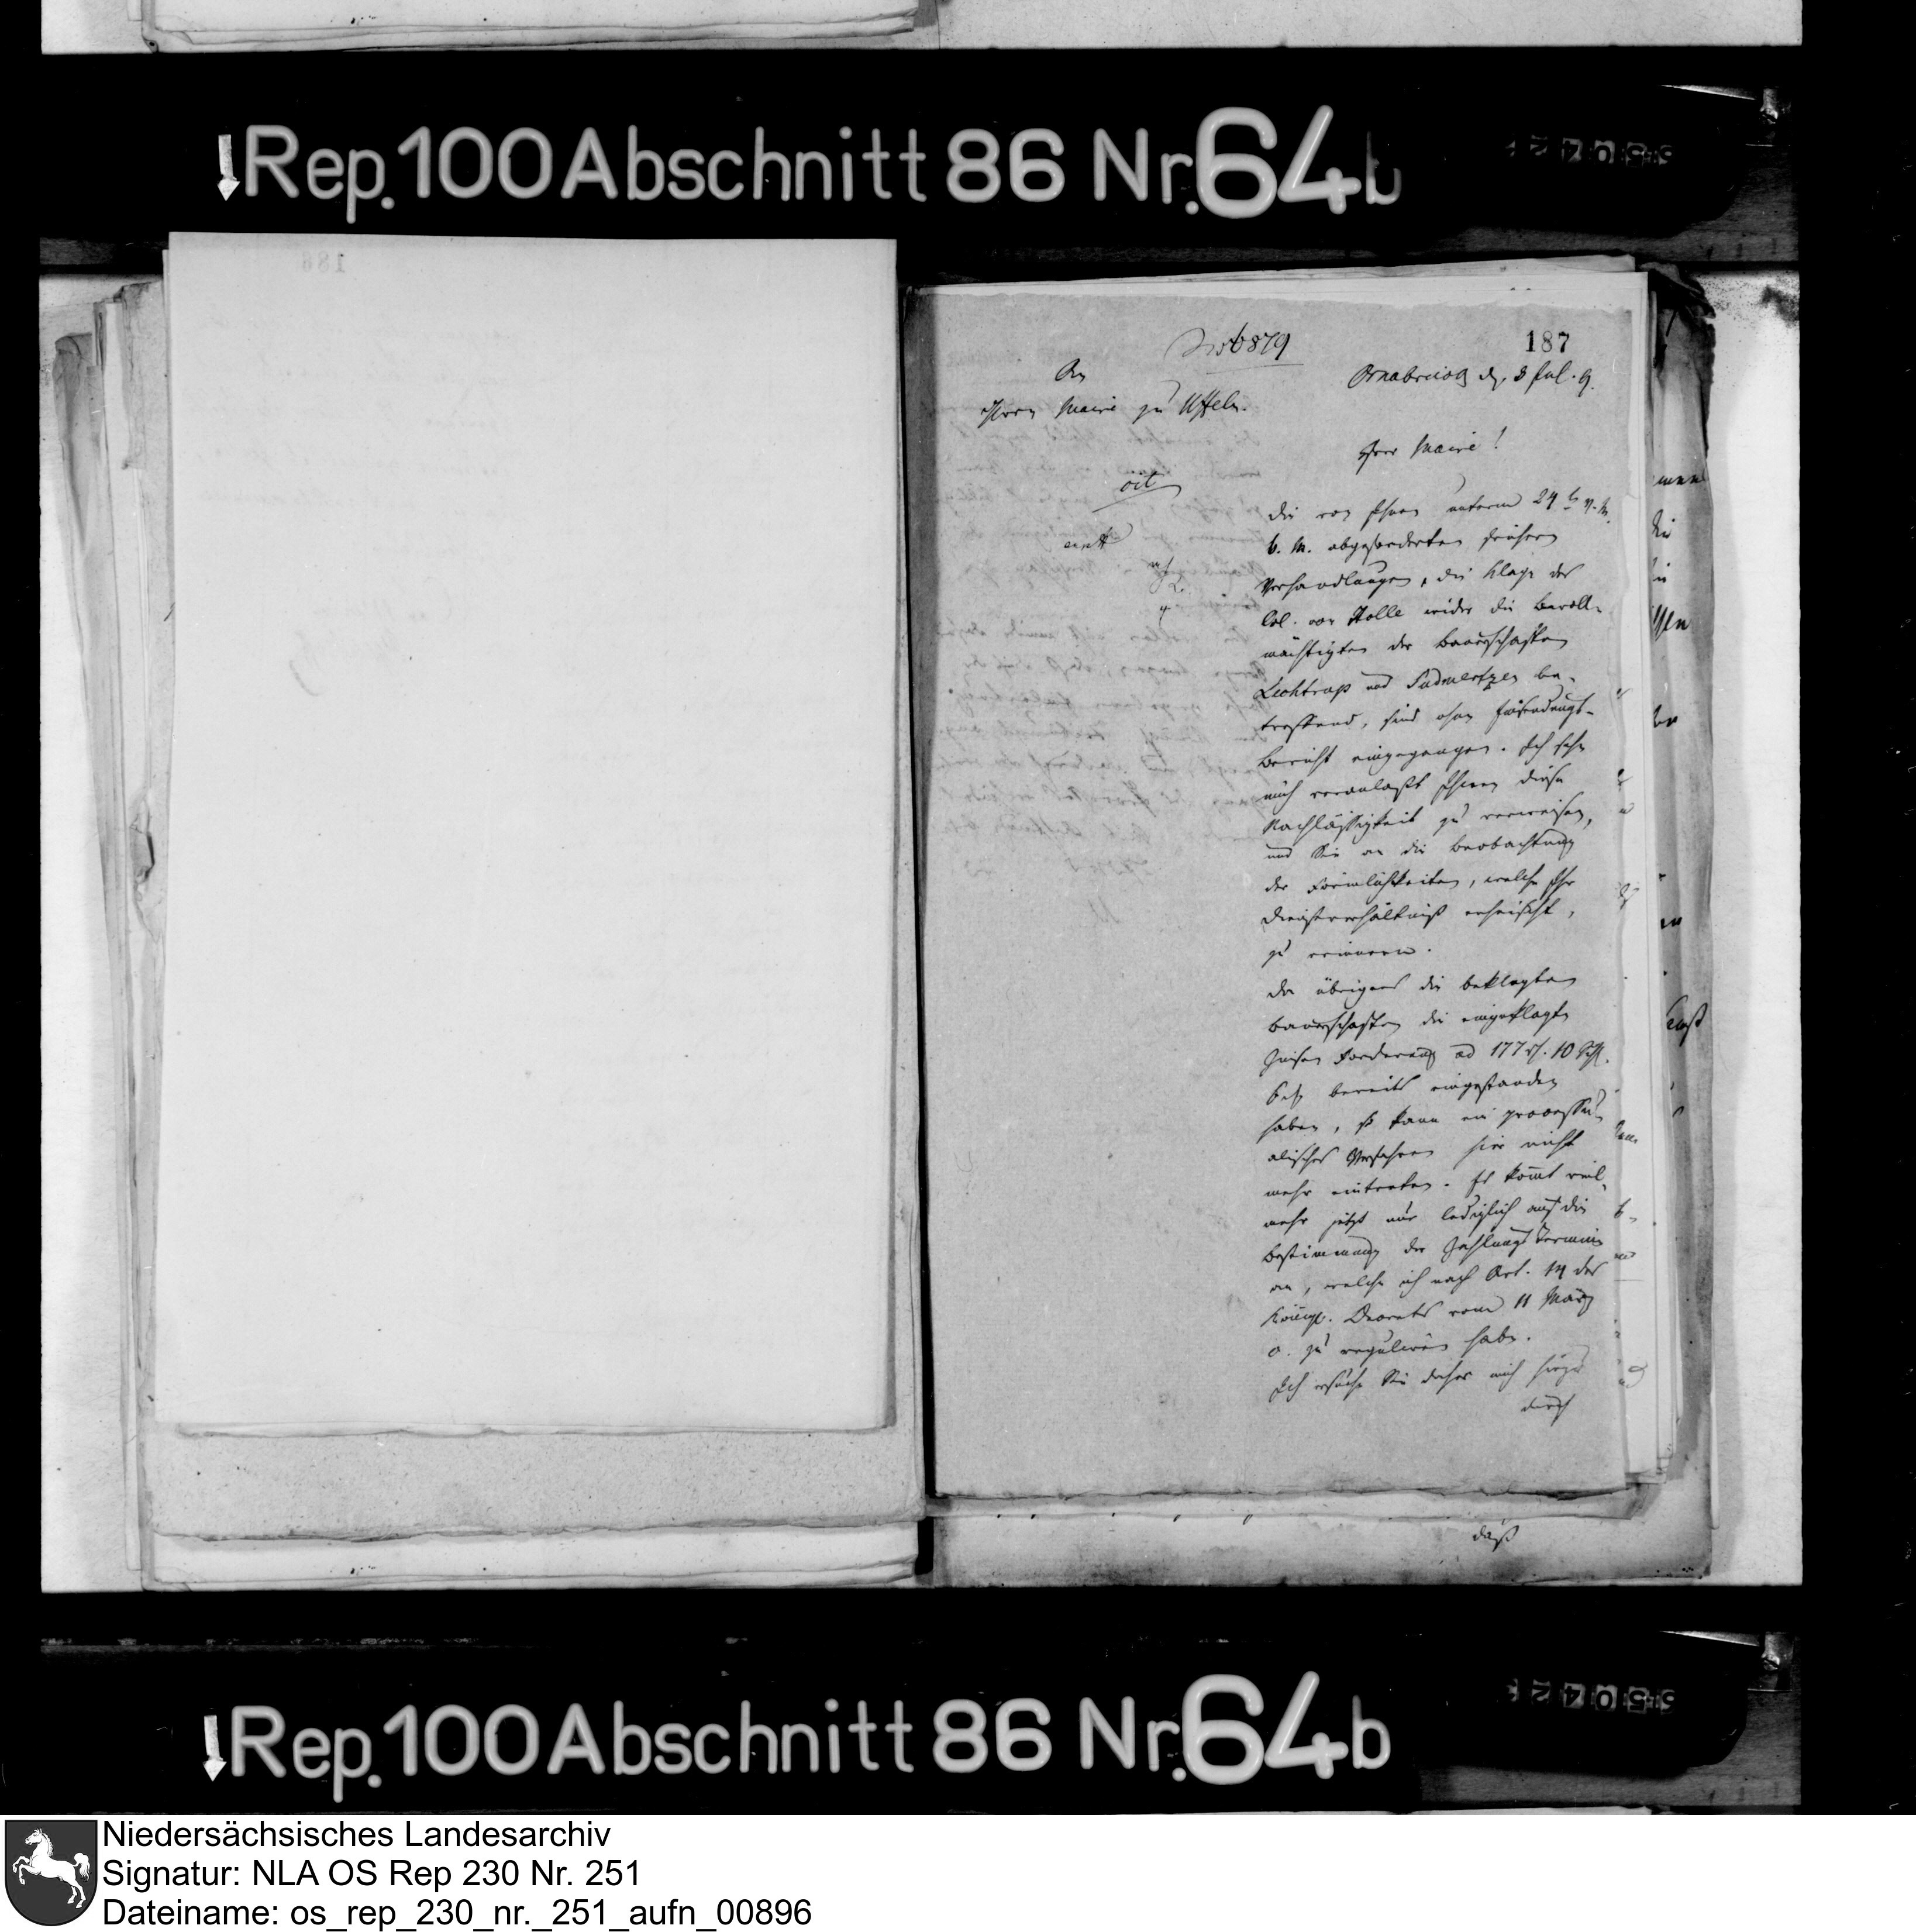 Rep. 100 Abschnitt 86 Nr. 64b
187
No 6879
An
Herrn Maire zu Uffeln.
Osnabrück d. 3 Jul. 9.
Herr Maire!
cit
Die von Ihnen unterm 24 t v. M.
abgeforderten frühern
Verhandlungen, die Klage des
Col. von Stolle wider die Bevoll-
mächtigten der Bauerschaften
Lechtrup und Südmerzen be-
treffend, sind ohne Einsendungs-
bericht eingegangen. Ich sehe
mich veranlaßt Ihnen diese
Nachlässigkeit zu verweisen,
und Sie an die Beobachtung
der Förmlichkeiten, welche Ihr
Dienstverhältniß erheischt,
zu erinnern.
Da übrigens die beklagten
Bauerschaften die eingeklagte
Forderung ad 177 rt. 10
bereits eingestanden
haben, so kann ein processu-
alisches Verfahren hier nicht
mehr eintreten. Es kömt viel-
mehr jetzt nur lediglich auf die
Bestimmung der Zahlungs Termine
an, welche ich nach Art. 14 des
Königl. Decrets vom 11 März
c. zu reguliren habe.
Ich ersuche Sie daher mich hiezu
durch
daß
Rep. 100 Abschnitt 86 Nr. 64b
Niedersächsisches Landesarchiv
Signatur: NLA OS Rep 230 Nr. 251
Dateiname: os_rep_230_nr._251_aufn_00896